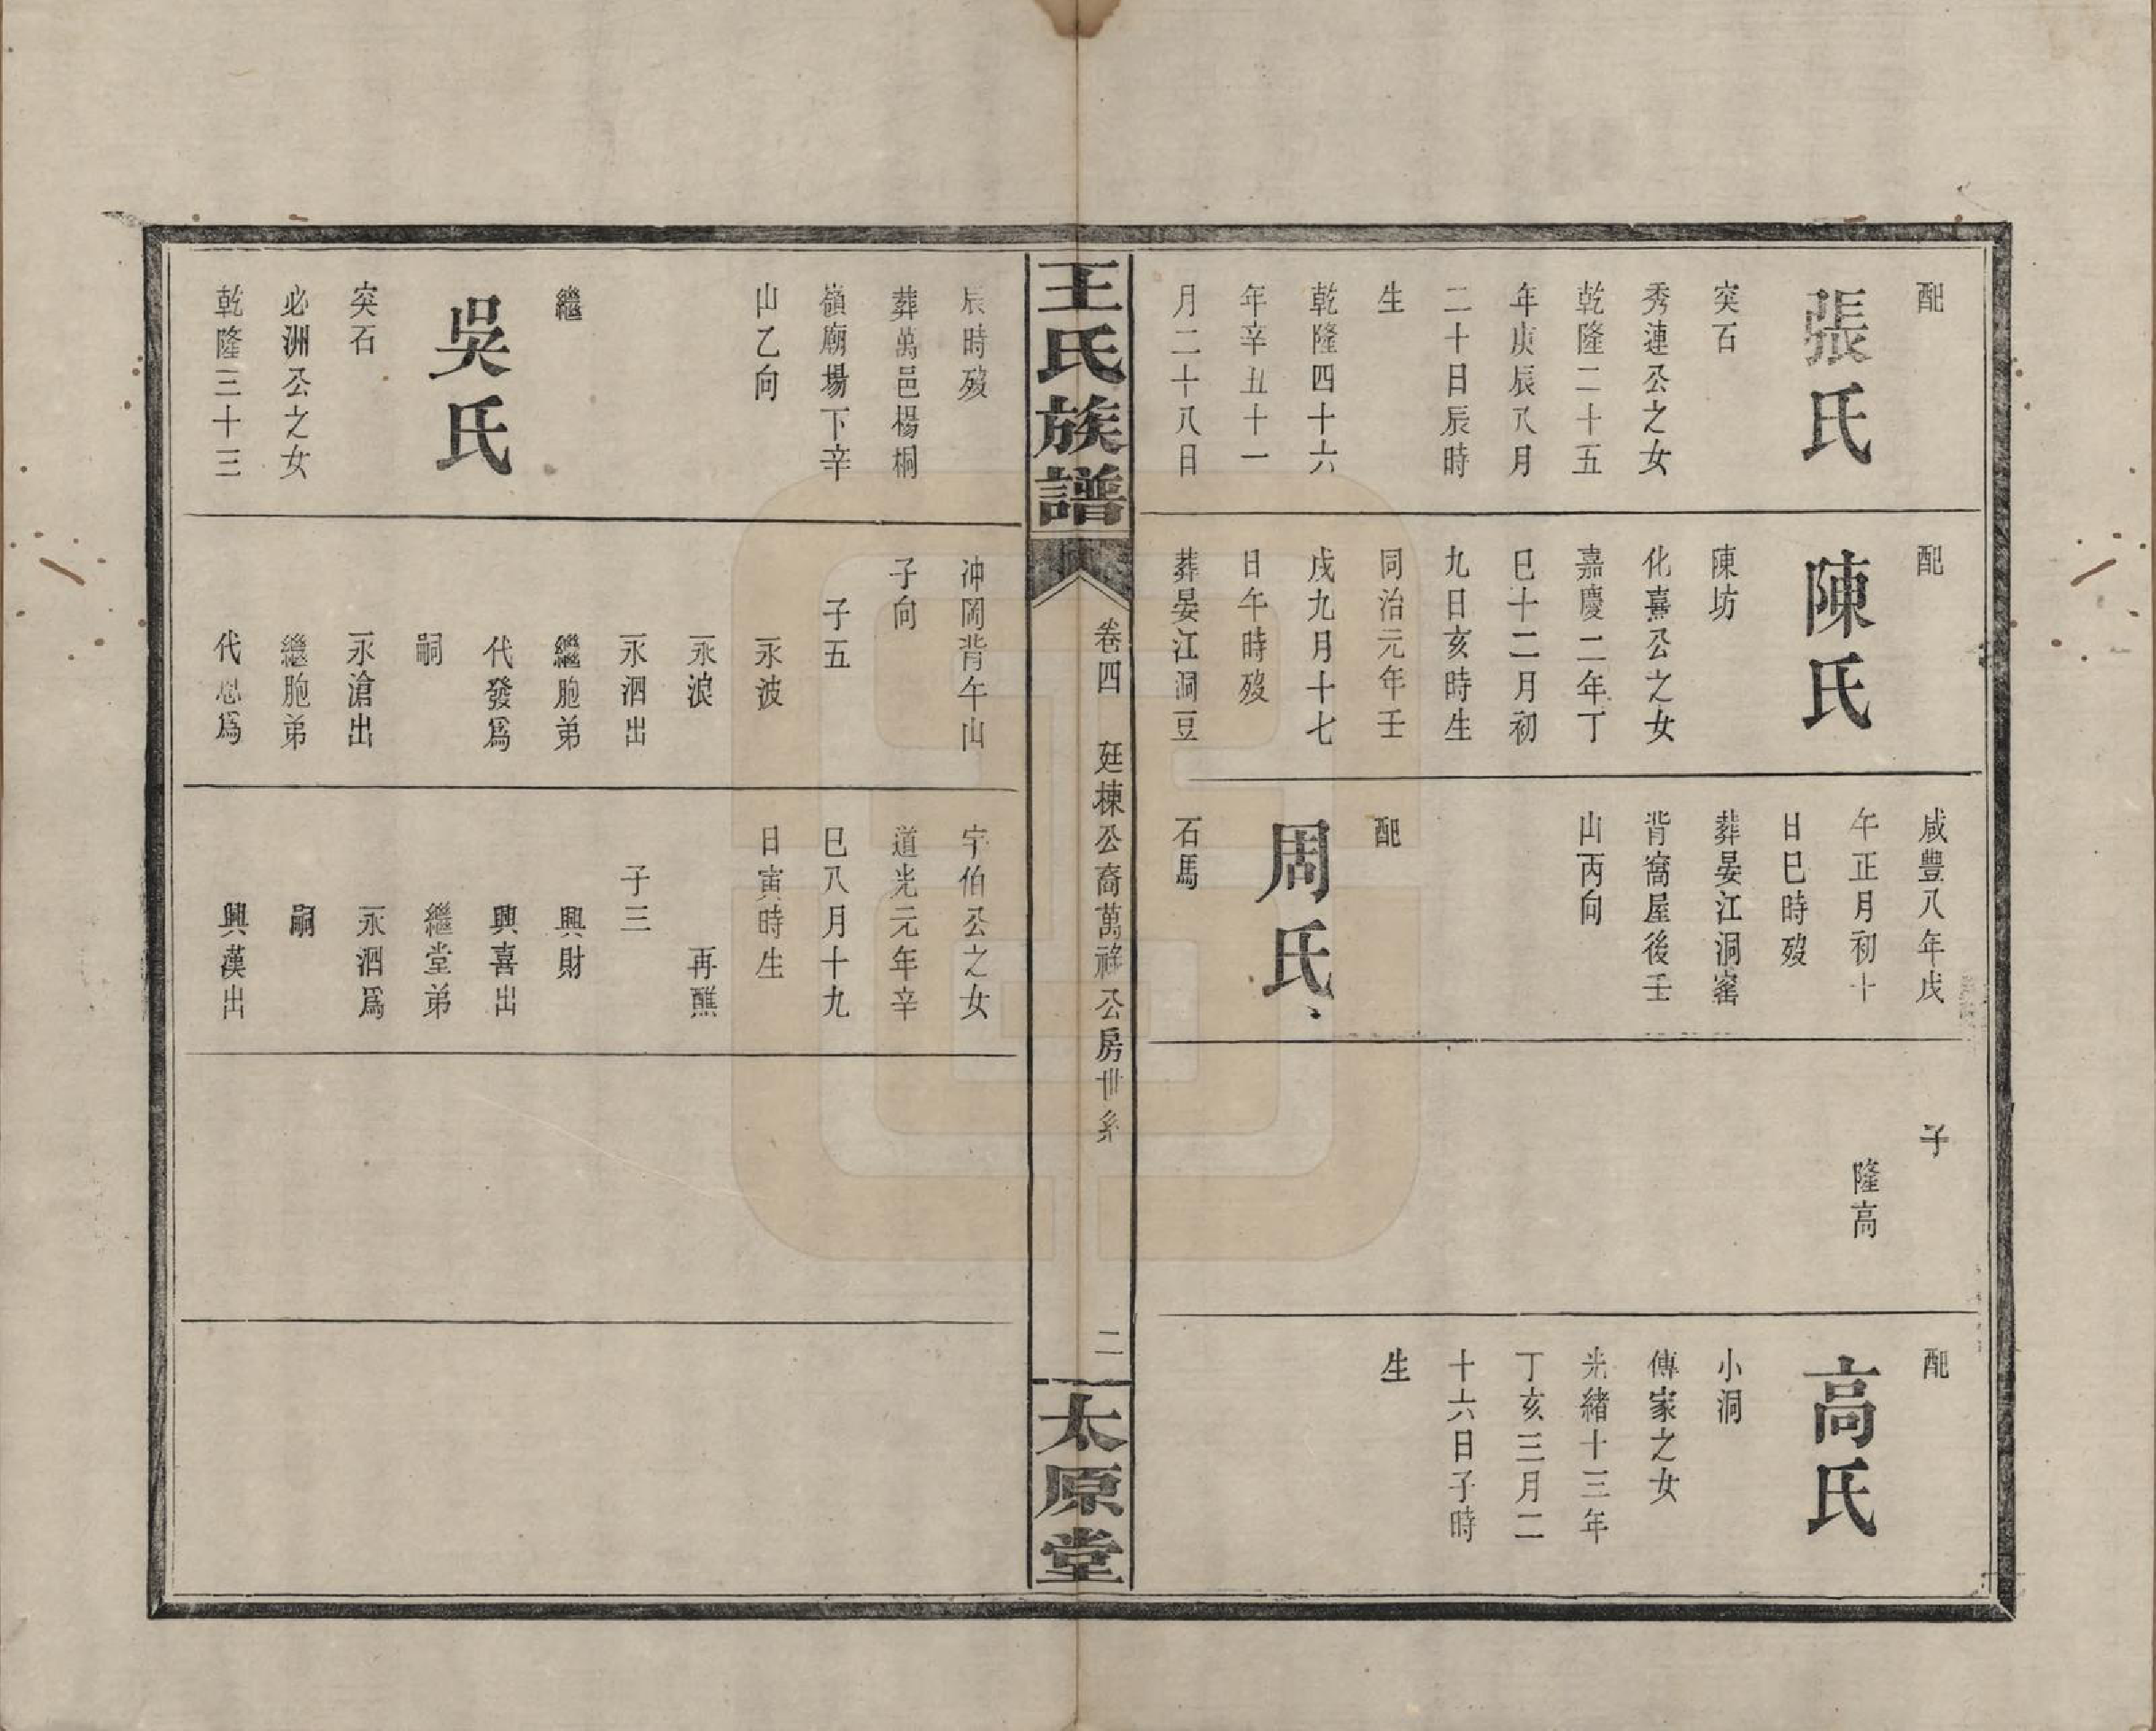 配
張氏
突石
秀連公之女
乾隆二十五
年庚辰八月
二十日辰時
生
乾隆四十六
年辛丑十一
月二十八日
配
陳氏
陳坊
化熹公之女
嘉慶二年丁
巳十二月初
九日亥時生
同治元年壬
戌九月十七
日午時歿
葬晏江洞豆
咸豐八年戊
午正月初十
日巳時歿
葬晏江洞窰
背窩屋後壬
山丙向
配
周氏
石馬
子
隆高
配
高氏
小洞
傳家之女
光緒十三年
丁亥三月二
十六日子時
生
王氏族譜
卷四 廷棟公裔萬祥公房世系
二
太原堂
辰時歿
葬萬邑楊桐
嶺廟場下辛
山乙向
繼
吳氏
突石
必洲公之女
乾隆三十三
沖岡背午山
子向
子五
永波
永浪
永泗出
繼胞弟
代發爲
嗣
永滄出
繼胞弟
代恩爲
宇伯公之女
道光元年辛
巳八月十九
日寅時生
再醮
子三
興財
興喜出
繼堂弟
永泗爲
嗣
興漢出